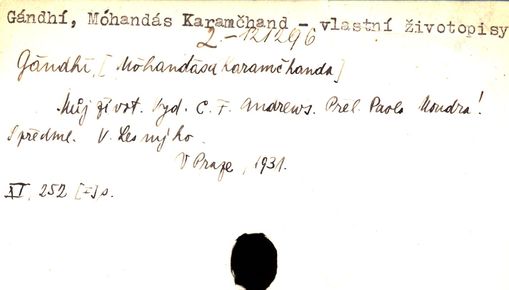 Gándhí, Móhandás Karamčhand - vlastní životopisy
2.-121296
Gándhí, [Móhandása Karamčhanda]
Můj život. Vyd. C. F. Andrews. Přel. Paola Moudrá!
S předml. V. Lesnýho.
V Praze, 1931.
XI, 252 [I] s.